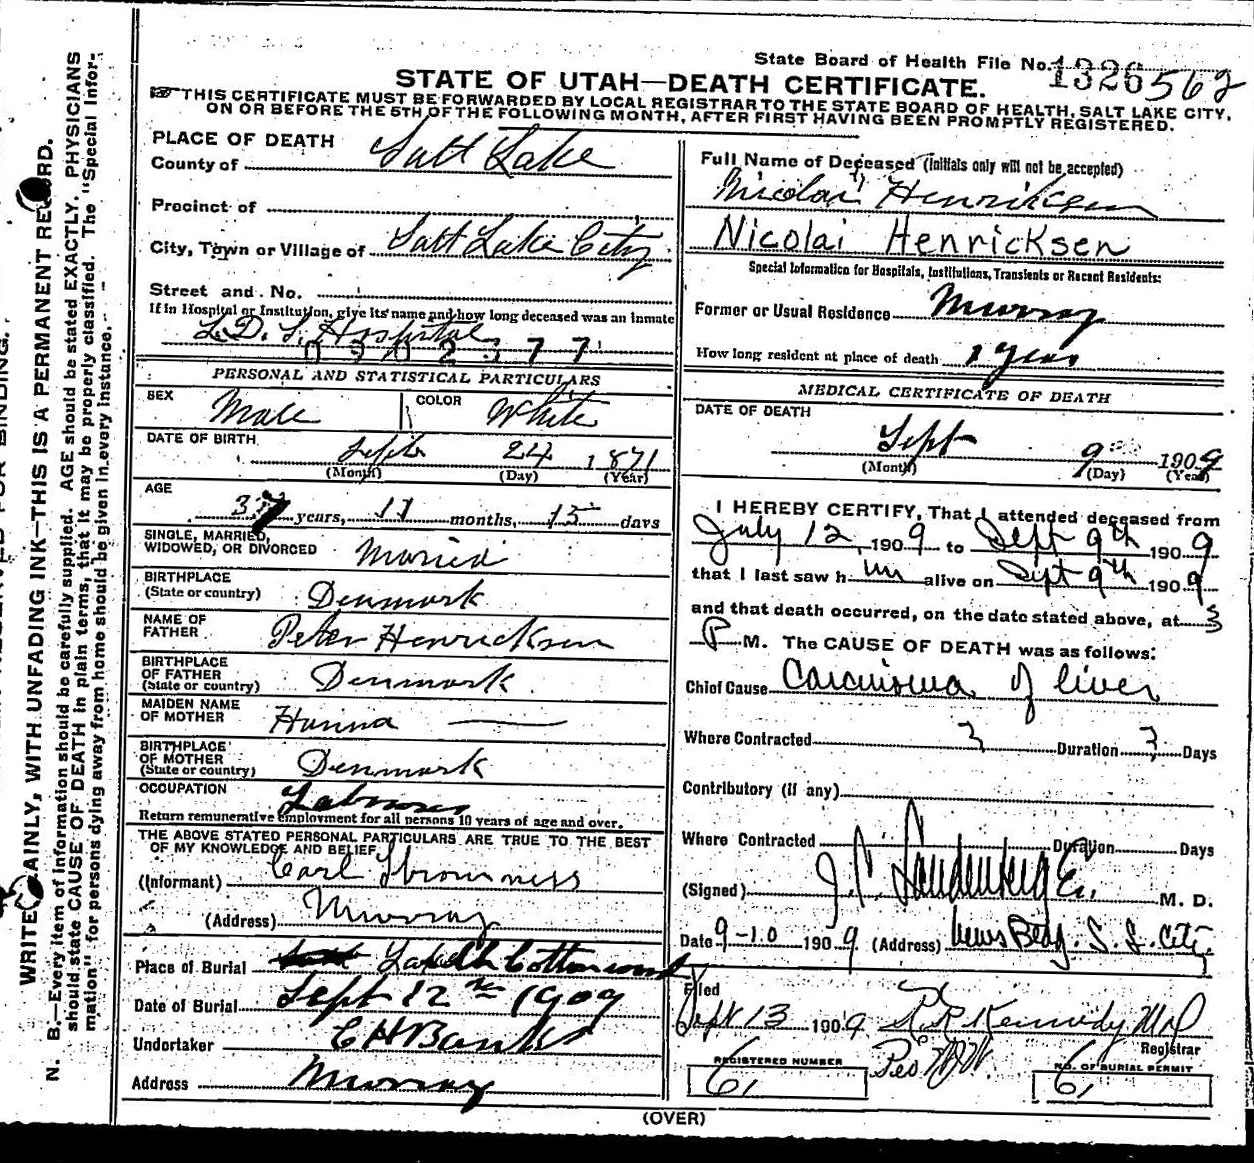 State Board of Health File No. 1326562
STATE OF UTAH—DEATH CERTIFICATE.
THIS CERTIFICATE MUST BE FORWARDED BY LOCAL REGISTRAR TO THE STATE BOARD OF HEALTH, SALT LAKE CITY,
ON OR BEFORE THE 5TH OF THE FOLLOWING MONTH, AFTER FIRST HAVING BEEN PROMPTLY REGISTERED.
PLACE OF DEATH
County of Salt Lake
Precinct of
City, Town or Village of Salt Lake City
Street and No.
If in Hospital or Institution, give its name and how long deceased was an inmate
L. D. S. Hospital
0302377
PERSONAL AND STATISTICAL PARTICULARS
SEX Male COLOR White
DATE OF BIRTH
Sept 24 1871
(Month) (Day) (Year)
AGE
37 years, 11 months, 15 days
SINGLE, MARRIED,
WIDOWED, OR DIVORCED Married
BIRTHPLACE
(State or country) Denmark
NAME OF
FATHER Peter Henricksen
BIRTHPLACE
OF FATHER
(State or country) Denmark
MAIDEN NAME
OF MOTHER Hanna
BIRTHPLACE
OF MOTHER
(State or country) Denmark
OCCUPATION Laborer
Return remunerative employment for all persons 10 years of age and over.
THE ABOVE STATED PERSONAL PARTICULARS ARE TRUE TO THE BEST
OF MY KNOWLEDGE AND BELIEF
(Informant) Carl
(Address) Murray
Place of Burial Cottonwood
Date of Burial Sept 12th 1909
Undertaker C H Banks
Address Murray
Full Name of Deceased (Initials only will not be accepted)
Nicolai Henriksen
Nicolai Henricksen
Special Information for Hospitals, Institutions, Transients or Recent Residents:
Former or Usual Residence Murray
How long resident at place of death 1 year
MEDICAL CERTIFICATE OF DEATH
DATE OF DEATH
Sept 9 1909
(Month) (Day) (Year)
I HEREBY CERTIFY, That I attended deceased from
July 12, 1909 to Sept 9th 1909
that I last saw him alive on Sept 9th 1909
and that death occurred, on the date stated above, at 3
P M. The CAUSE OF DEATH was as follows:
Chief Cause Carcinoma of liver
Where Contracted 3 Duration 3 Days
Contributory (if any)
Where Contracted Duration Days
(Signed) J. C. Landenberger M. D.
Date 9-10 1909 (Address) News Bldg. S. L. City
Filed
Sept 13 1909 Kennedy MD
Registrar
REGISTERED NUMBER
61
NO. OF BURIAL PERMIT
61
(OVER)
N. B.—Every item of information should be carefully supplied. AGE should be stated EXACTLY. PHYSICIANS
should state CAUSE OF DEATH in plain terms, that it may be properly classified. The "Special Infor-
mation" for persons dying away from home should be given in every instance.